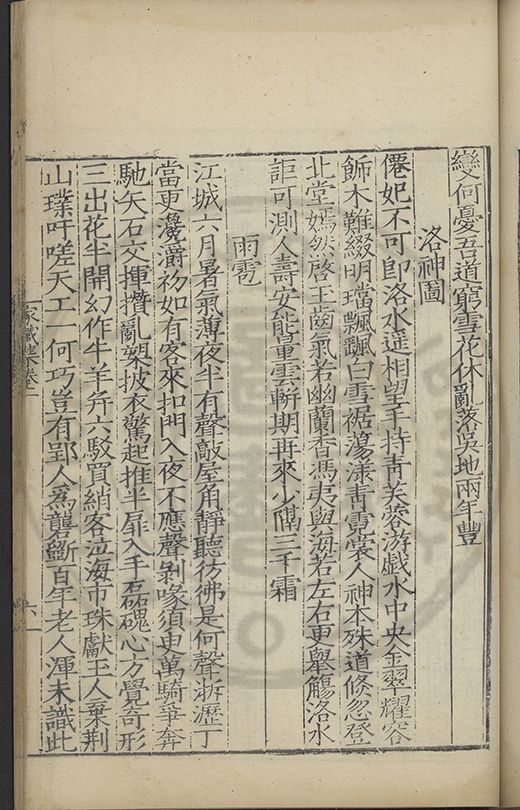 變何憂吾道窮雪花休亂落吳地兩年豐
洛神圖
僊妃不可即洛水遥相望手持青芙蓉游戲水中央金翠耀容
飾木難綴明璫飄飄白雪裾蕩漾青霓裳人神本殊道倏忽登
北堂嫣然啓玉齒氣若幽蘭香馮夷與海若左右更舉觴洛水
詎可測人壽安能量雲軿期再來少隅三千霜
雨雹
江城六月暑氣薄夜半有聲敲屋角靜聽彷彿是何聲淅瀝丁
當更瀺灂初如有客來扣門入夜不應聲剝喙須臾萬騎爭奔
馳矢石交揮攢亂槊披衣驚起推半扉入手磊磈心方覺奇形
三出花半開幻作牛羊弁六駁買綃客泣海市珠獻玉人棄荆
山璞吁嗟天工一何巧豈有郢人爲礲斲百年老人渾未識此
家藏集卷二
六